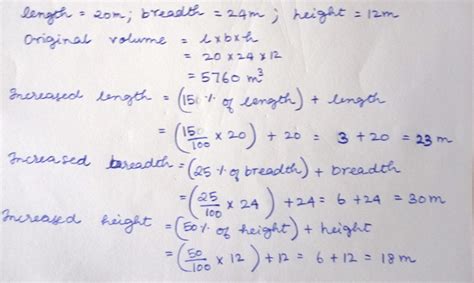 length = 20m; breadth = 24m; height = 12m
Original volume = l×b×h
= 20 × 24 × 12
= 5760 m³
Increased length = (15% of length) + length
= (15/100 × 20) + 20 = 3 + 20 = 23 m
Increased breadth = (25% of breadth) + breadth
= (25/100 × 24) + 24 = 6 + 24 = 30m
Increased height = (50% of height) + height
= (50/100 × 12) + 12 = 6 + 12 = 18m